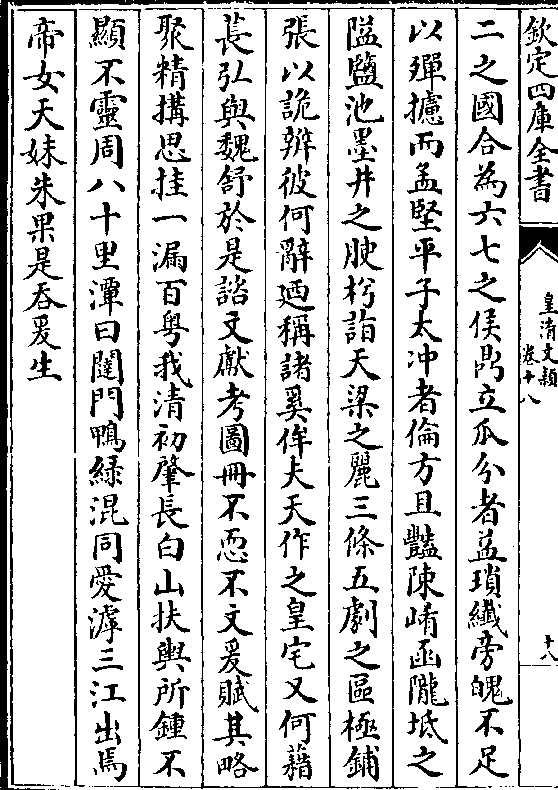 欽定四庫全書
皇清文穎
卷十八
十八
二之國合為六七之侯鼎立瓜分者益瑣纖旁魄不足
以殫攄而孟堅平子太冲者倫方且豔陳崤函隴坻之
隘鹽池墨井之腴枍詣天梁之麗三條五劇之區極鋪
張以詭辨彼何辭迺稱諸奚侔夫天作之皇宅又何藉
萇弘與魏舒於是諮文獻考圖冊不恧不文爰賦其略
聚精搆思挂一漏百粤我清初肇長白山扶輿所鍾不
顯不靈周八十里潭曰闥門鴨緑混同愛滹三江出焉
帝女天妹朱果是吞爰生